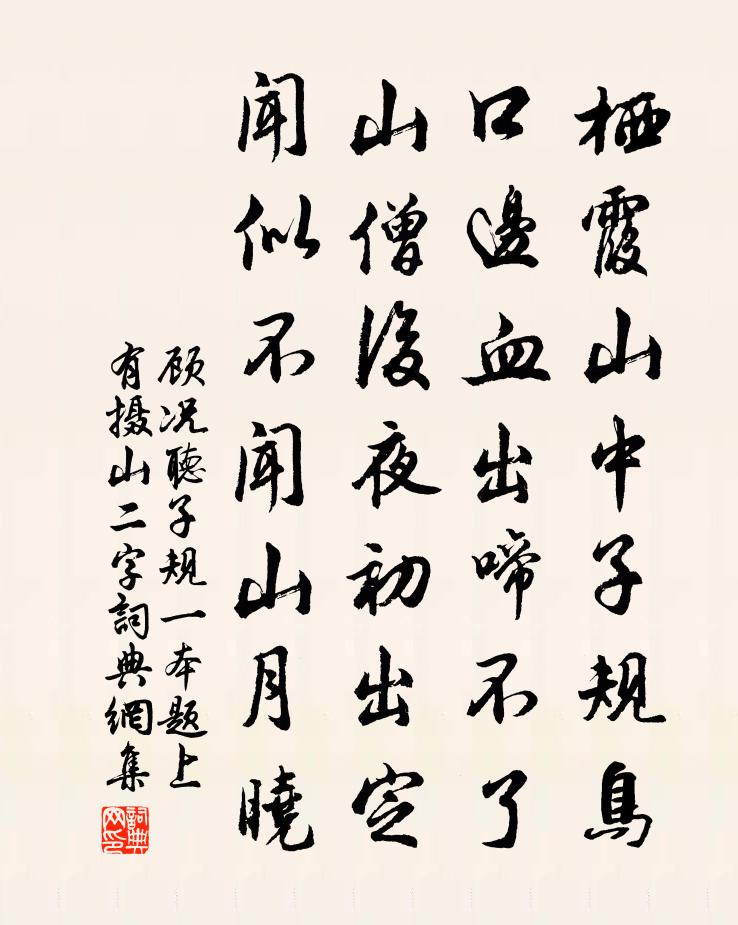 栖霞山中子規鳥
口邊血出啼不了
山僧後夜初出定
聞似不聞山月曉
顾况聽子規一本题上
有摄山二字詞典網集
詞典
网印